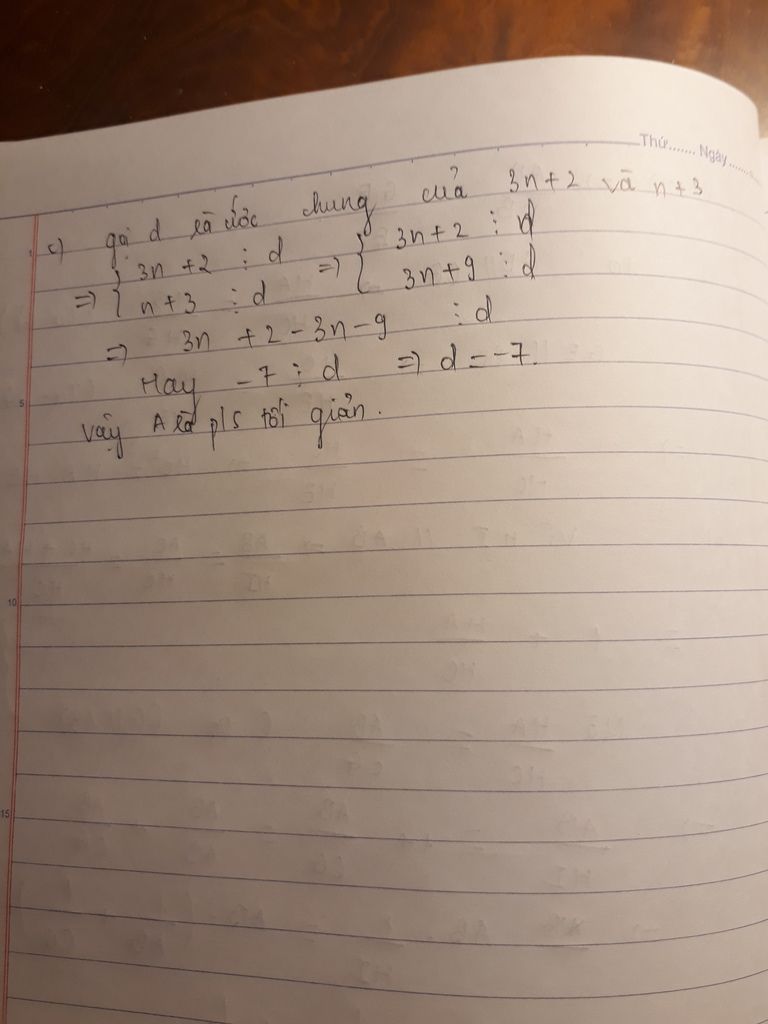 Thứ....... Ngày.......
c) gọi d là ước chung của 3n+2 và n+3
=> { 3n + 2 ⋮ d => { 3n+2 ⋮ d
n+3 ⋮ d 3n+9 ⋮ d
=> 3n + 2 - 3n - 9 ⋮ d
Hay -7 ⋮ d => d = -7.
5
vậy A là p/s tối giản.
10
15